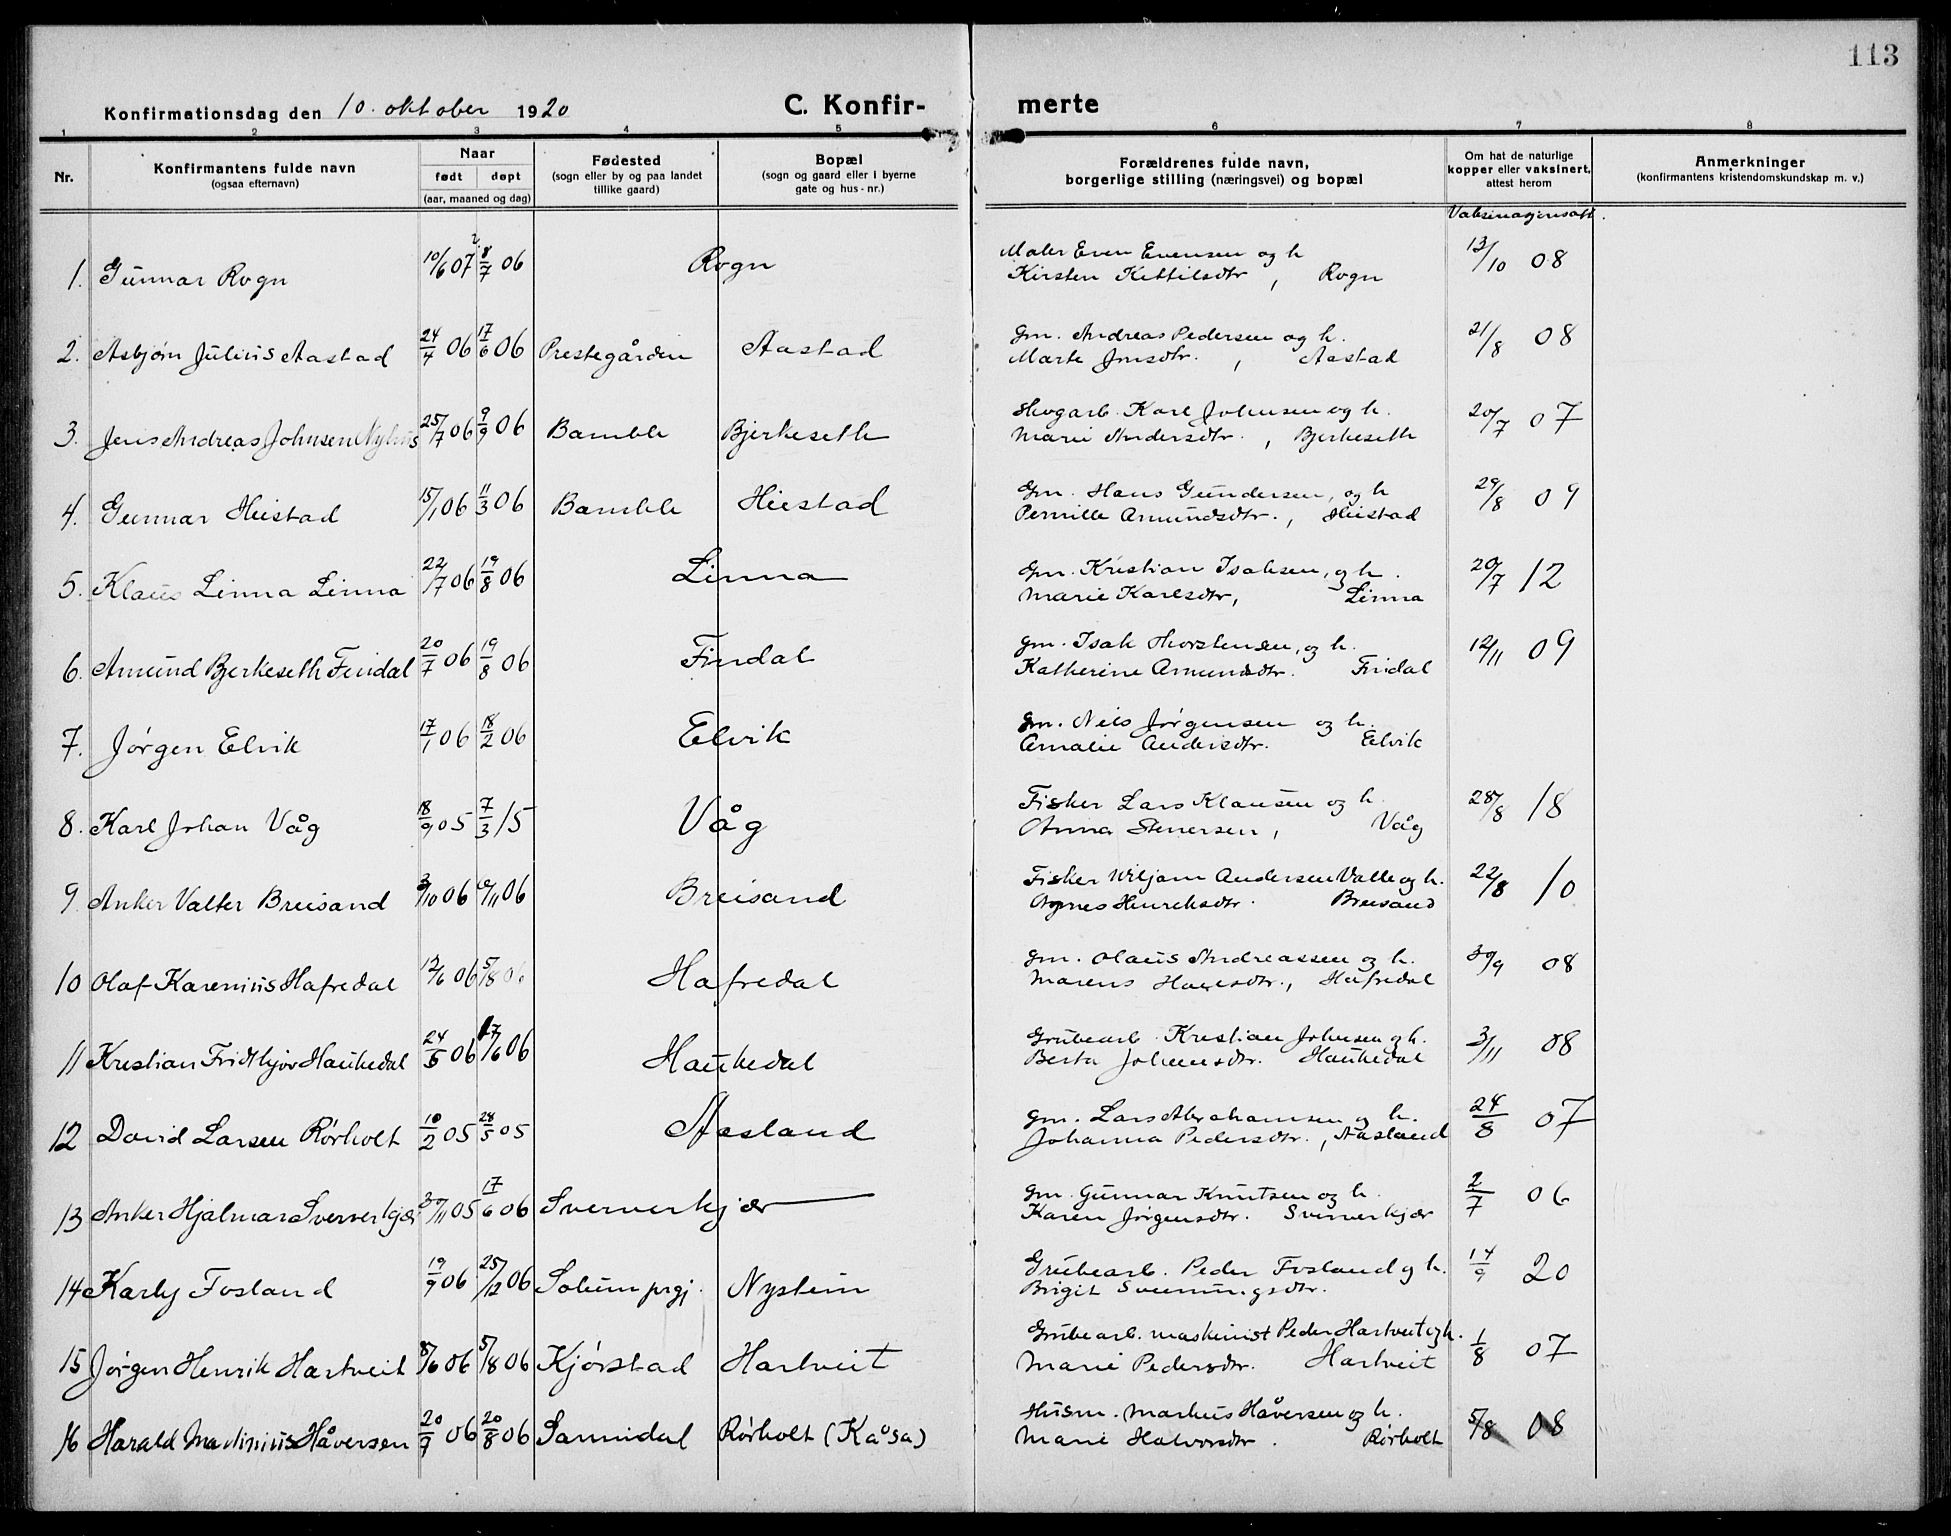 113
Konfirmationsdag den 10. oktober 1920 C. Konfir- merte
1 2 3 4 5 6 7 8
Nr. Konfirmantens fulde navn (ogsaa efternavn) Naar født døpt (aar, maaned og dag) Fødested (sogn eller by og paa landet tillike gaard) Bopæl (sogn og gaard eller i byerne gate og hus-nr.) Forældrenes fulde navn, borgerlige stilling (næringsvei) og bopæl Om hat de naturlige kopper eller vaksinert, attest herom Anmerkninger (konfirmantens kristendomskundskap m. v.)
Vaksinasjonsatt.
1. Gunnar Rogn 10/6 07 8/7 06 Rogn Maler Even Evensen og h. Kirsten Kittilsdtr, Rogn 13/10 08
2. Asbjørn Julius Aastad 24/4 06 17/6 06 Prestegården Aastad Gm. Andreas Pedersen og h. Marte Jensdtr., Aastad 21/8 08
3. Jens Andreas Johnsen Nyhus 25/7 06 9/9 06 Bamble Bjerkeseth Skogarb. Karl Johnsen og h. Marie Andersdtr., Bjerkeseth 20/7 07
4. Gunnar Heistad 15/1 06 11/3 06 Bamble Heistad Gm. Hans Gundersen, og h. Pernille Amundsdtr., Heistad 29/8 09
5. Klaus Linna Linna 22/7 06 19/8 06 Linna Gm. Kristian Isaksen, og h. Marie Karlsdtr, Linna 20/7 12
6. Amund Bjerkeseth Findal 20/7 06 19/8 06 Findal Gm. Isak Thorstensen, og h. Katherine Amundsdtr. Findal 12/11 09
7. Jørgen Elvik 17/1 06 18/2 06 Elvik Gm. Nils Jørgensen og h. Amalie Andersdtr. Elvik
8. Karl Johan Våg 18/9 05 7/3 15 Våg Fisker Lars Klausen og h. Anna Stenersen, Våg 28/8 18
9. Anker Valter Breisand 3/10 06 /11 06 Breisand Fisker Wiljam Andersen Valle og h. Agnes Henriksdtr. Breisand 22/8 10
10 Olaf Karenius Hafredal 12/6 06 5/8 06 Hafredal Gm. Olaus Andreassen og h. Marens Hansdtr., Hafredal 30/9 08
11 Kristian Fridthjov Haukedal 24/5 06 17/6 06 Haukedal Grubearb. Kristian Johnsen og h. Berta Johnsdtr. Haukedal 3/11 08
12 David Larsen Rørholt 10/2 05 28/5 05 Aasland Gm. Lars Abrahamsen og h. Johanna Pedersdtr., Aasland 24/8 07
13 Anker Hjalmar Sververkjær 30/11 05 17/6 06 Sververkjær Gm. Gunnar Knutsen og h. Karen Jørgensdtr. Sververkjær 2/7 06
14 Karly Fosland 19/9 06 25/12 06 Solum prgj. Nystein Grubearb. Peder Fosland og h. Birgit Sveinungsdtr. 14/9 20
15 Jørgen Henrik Hartveit 8/6 06 5/8 06 Kjørstad Hartveit Grubearb. maskinist Peder Hartveit og h. Marie Pedersdtr. Hartveit 1/8 07
16 Harald Martinius Håversen 20/7 06 20/8 06 Sannidal Rørholt (Kåsa) Husm. Markus Håversen og h. Marie Halvorsdtr. Rørholt 5/8 08